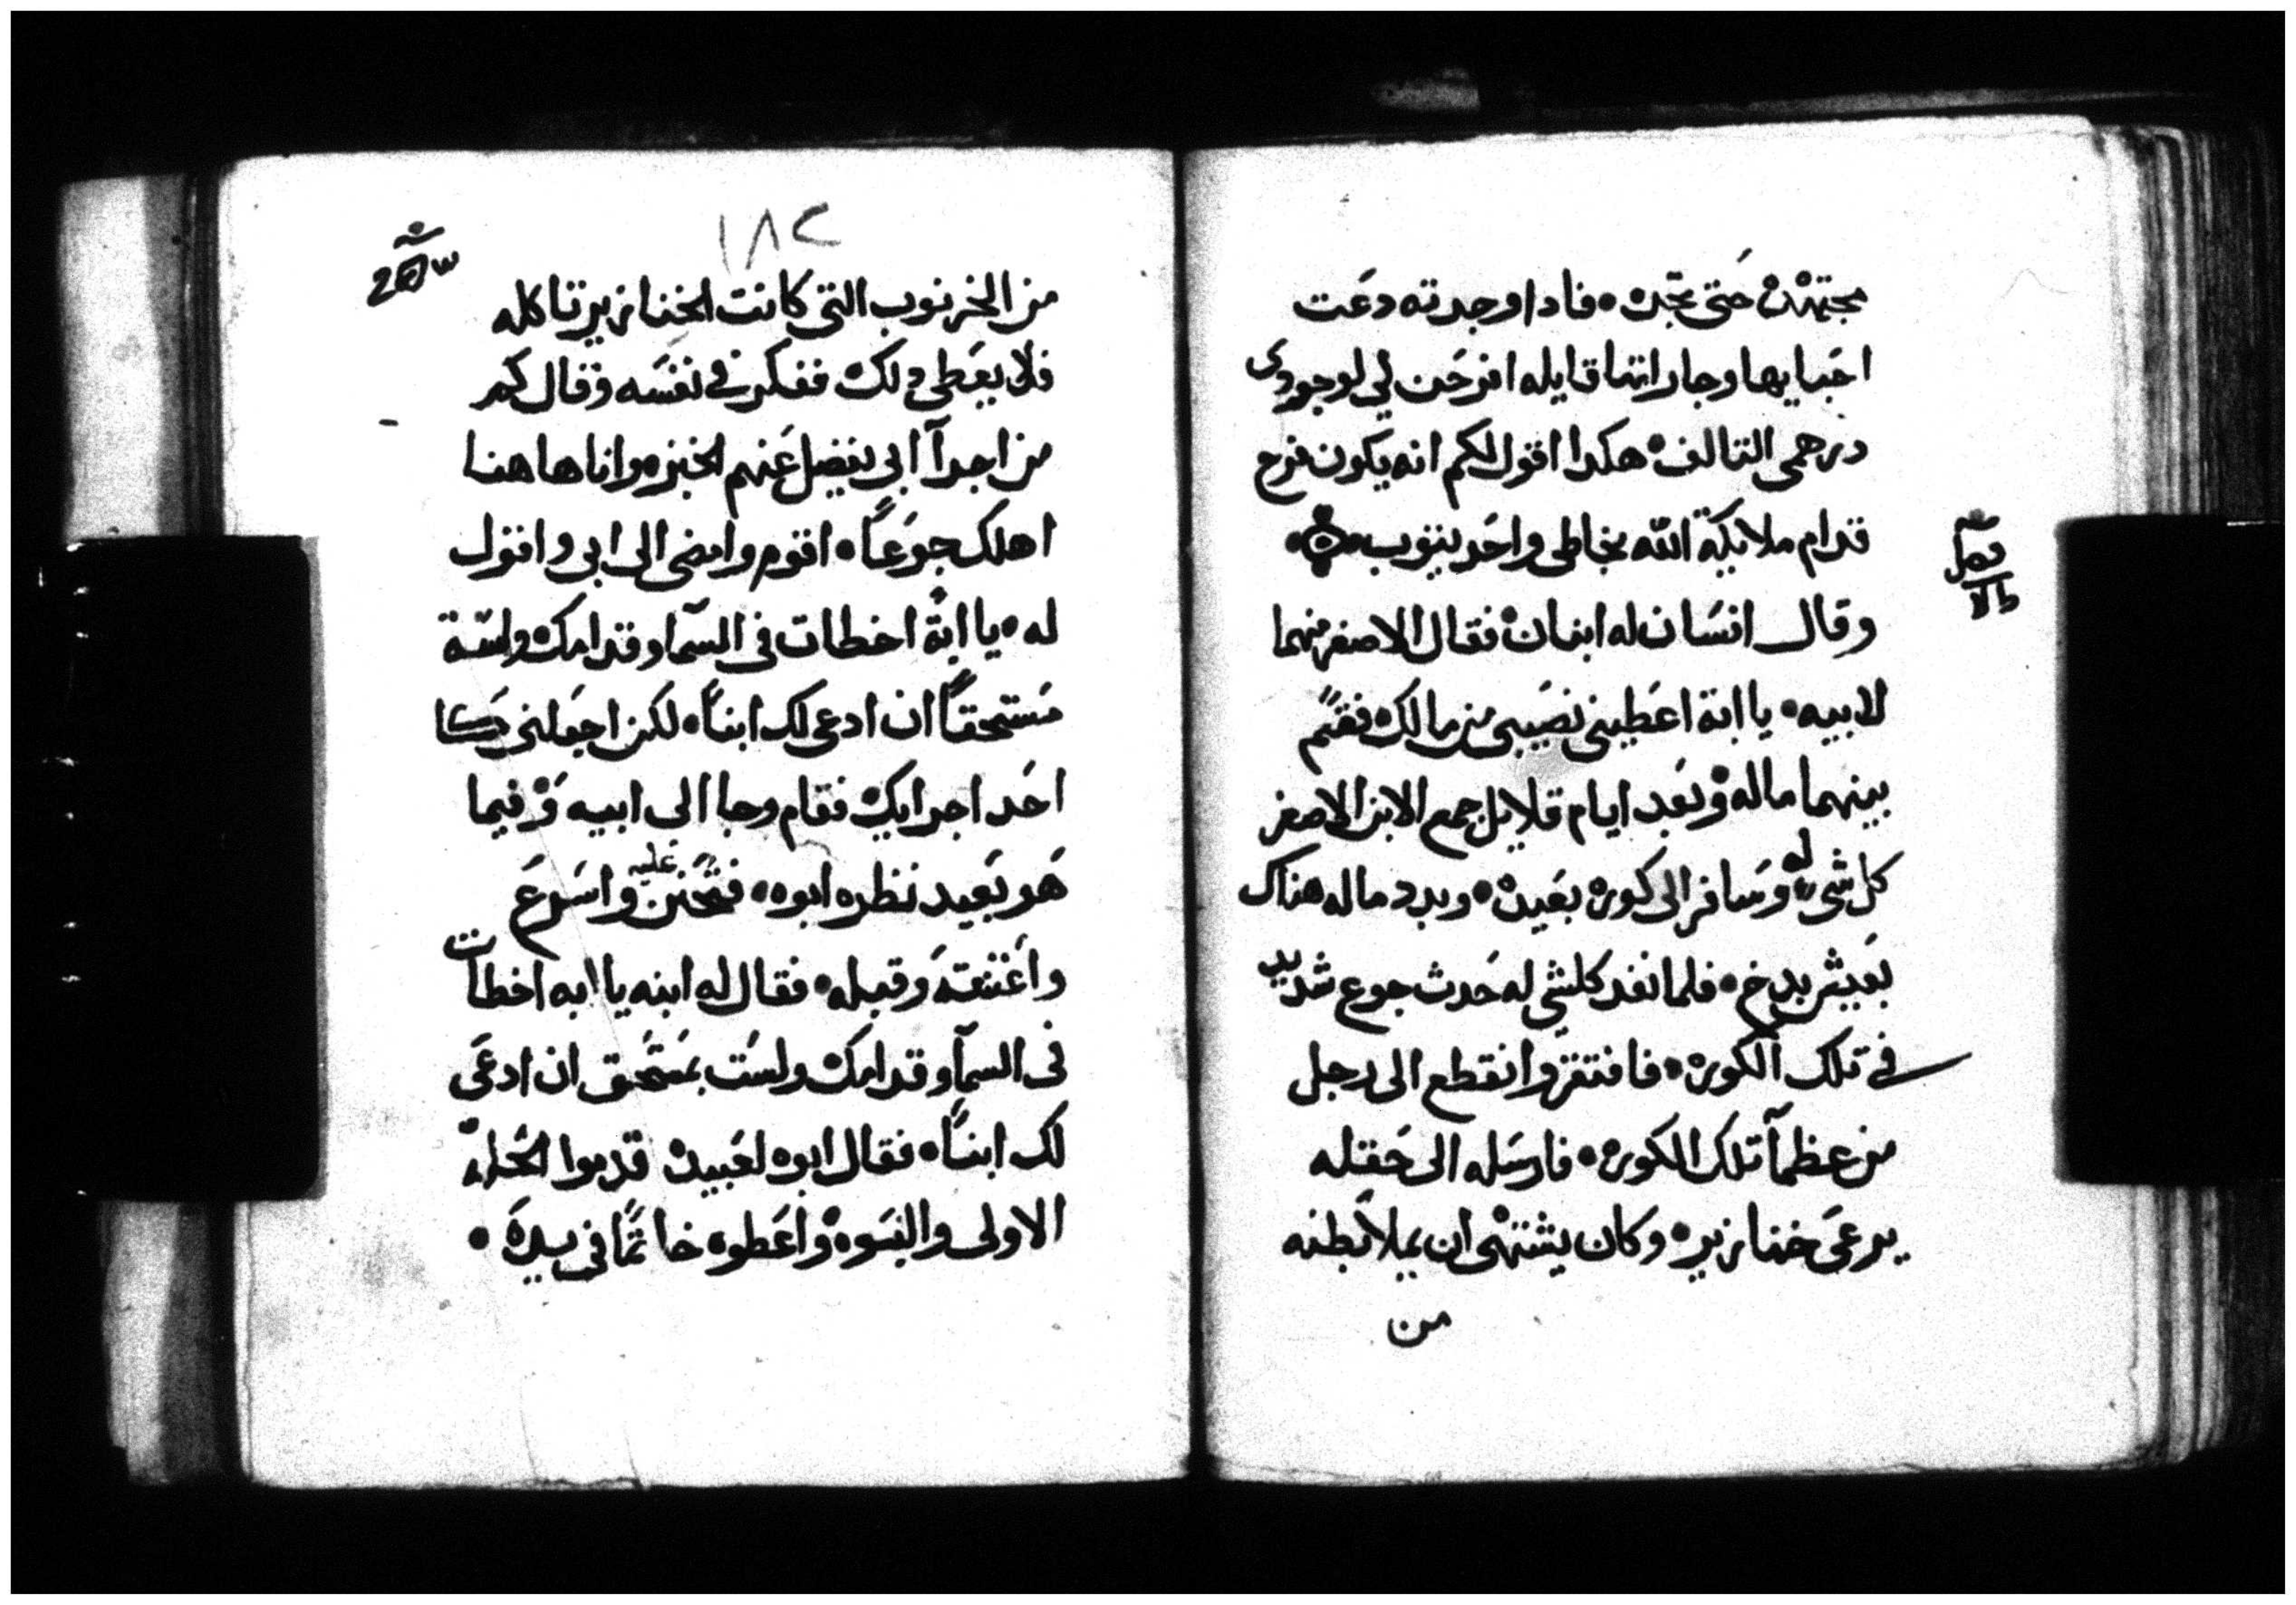 مجتهدة حتى تجده • فادا وجدته دعت
احبايها وجاراتها قايله افرحن لي لوجودى
درهمى التالف • هكدا اقول لكم انه يكون فرح
قدام ملايكة الله بخاطى واحد يتوب •
وقال انسان له ابنان فقال الاصغر منهما
لابيه • يا ابة اعطينى نصيبى من مالك فقسم
بينهما ماله وبعد ايام قلايل جمع الابن الاصغر
كل شى له وسافر الى كورة بعيدة • وبدد ماله هناك
بعيش بدخ • فلما نفد كلشى له حدث جوع شديد
في تلك الكورة • فافتقر وانقطع الى رجل
من عظمآ تلك الكورة • فارسله الى حقله
يرعى خنازير • وكان يشتهى ان يملا بطنه
من
فصل
١٨٢
من الخرنوب التى كانت الخنازير تاكله
فلا يعطى دلك ففكر في نفسه وقال كم
من اجرآ ابى يفضل عنهم الخبز • وانا هاهنا
اهلك جوعاً • اقوم وامضى الى ابى واقول
له • يا ابة اخطات فى السمآ وقدامك ولست
مستحقاً ان ادعى لك ابناً • لكن اجعلنى كا
احد اجرايك فقام وجا الى ابيه وفيما
هو بعيد نظره ابوه • فتحنن عليه واسرع
واعتنقه وقبله • فقال له ابنه يا ابه اخطات
فى السمآ وقدامك ولست بمستحق ان ادعى
لك ابناً • فقال ابوه لعبيده قدموا الحلة
الاولى والبسوه واعطوه خاتماً فى يده •